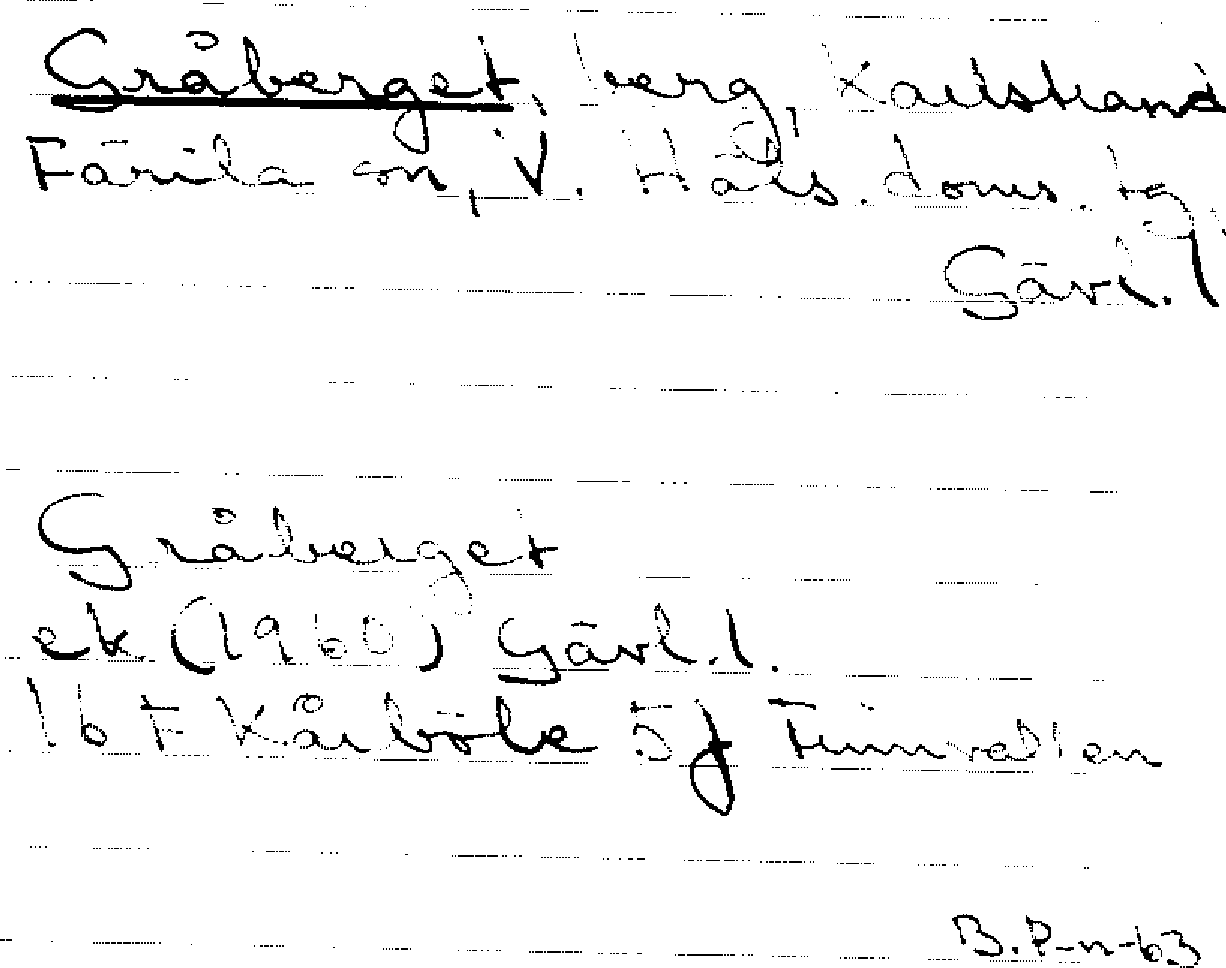 Gråberget, berg, Karlstrand
Färila sn, V. Häls. doms. tg,
Gävl. l
Gråberget
ek. (1960) Gävl. l.
16 F Kårböle 5 f Finnvallen
B.P-n-63